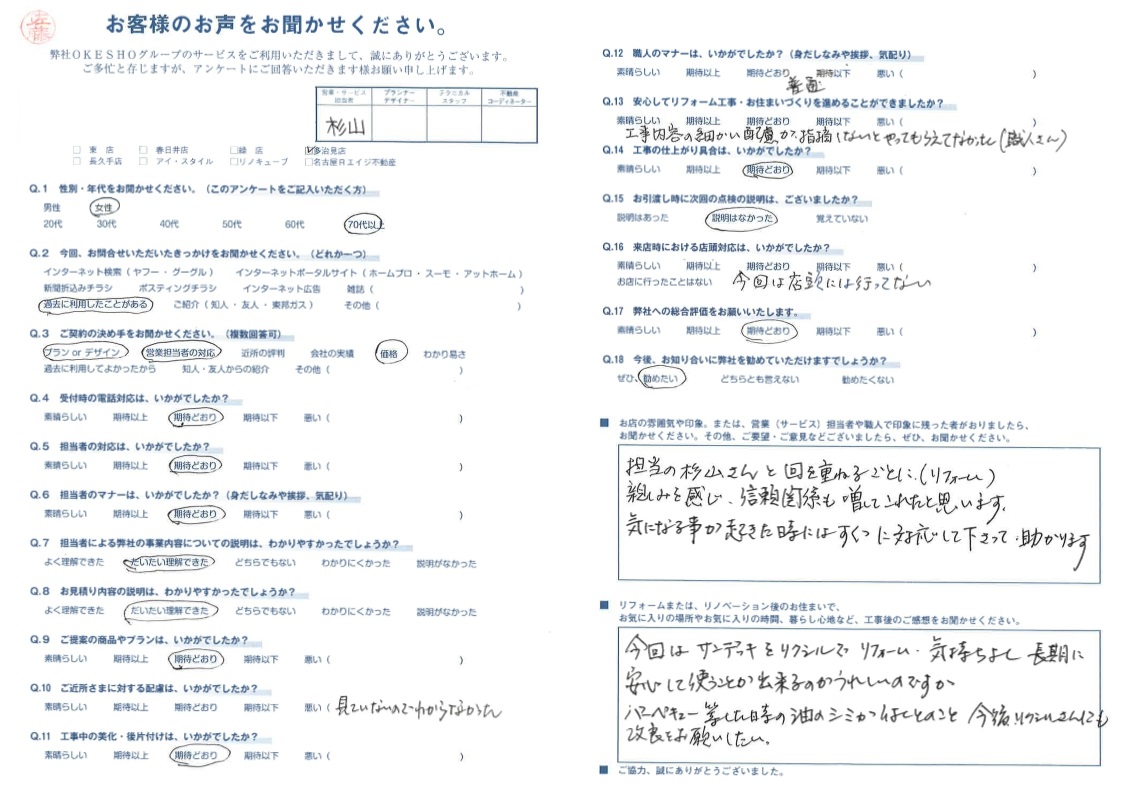 お客様のお声をお聞かせください。
弊社OKESHOグループのサービスをご利用いただきまして、誠にありがとうございます。
ご多忙と存じますが、アンケートにご回答いただきます様お願い申し上げます。
営業・サービス担当者 プランナーデザイナー テクニカルスタッフ 不動産コーディネーター
杉山
□ 東 店 □ 春日井店 □緑 店 ☑多治見店
□ 長久手店 □ アイ・スタイル □リノキューブ □名古屋Rエイジ不動産
Q.1 性別・年代をお聞かせください。（このアンケートをご記入いただく方）
男性 女性
20代 30代 40代 50代 60代 70代以上
Q.2 今回、お問合せいただいたきっかけをお聞かせください。（どれか一つ）
インターネット検索（ ヤフー ・ グーグル ） インターネットポータルサイト（ ホームプロ ・ スーモ ・ アットホーム ）
新聞折込みチラシ ポスティングチラシ インターネット広告 雑誌（ ）
過去に利用したことがある ご紹介（ 知人 ・ 友人 ・ 東邦ガス ） その他（ ）
Q.3 ご契約の決め手をお聞かせください。（複数回答可）
プラン or デザイン 営業担当者の対応 近所の評判 会社の実績 価格 わかり易さ
過去に利用してよかったから 知人・友人からの紹介 その他（ ）
Q.4 受付時の電話対応は、いかがでしたか？
素晴らしい 期待以上 期待どおり 期待以下 悪い（ ）
Q.5 担当者の対応は、いかがでしたか？
素晴らしい 期待以上 期待どおり 期待以下 悪い（ ）
Q.6 担当者のマナーは、いかがでしたか？（身だしなみや挨拶、気配り）
素晴らしい 期待以上 期待どおり 期待以下 悪い（ ）
Q.7 担当者による弊社の事業内容についての説明は、わかりやすかったでしょうか？
よく理解できた だいたい理解できた どちらでもない わかりにくかった 説明がなかった
Q.8 お見積り内容の説明は、わかりやすかったでしょうか？
よく理解できた だいたい理解できた どちらでもない わかりにくかった 説明がなかった
Q.9 ご提案の商品やプランは、いかがでしたか？
素晴らしい 期待以上 期待どおり 期待以下 悪い（ ）
Q.10 ご近所さまに対する配慮は、いかがでしたか？
素晴らしい 期待以上 期待どおり 期待以下 悪い（ 見ていないのでわからなかった
Q.11 工事中の美化・後片付けは、いかがでしたか？
素晴らしい 期待以上 期待どおり 期待以下 悪い（ ）
Q.12 職人のマナーは、いかがでしたか？（身だしなみや挨拶、気配り）
素晴らしい 期待以上 期待どおり 期待以下 悪い（ ）
普通
Q.13 安心してリフォーム工事・お住まいづくりを進めることができましたか？
素晴らしい 期待以上 期待どおり 期待以下 悪い（ ）
工事内容の細かい配慮が、指摘しないとやってもらえてなかった(職人さん)
Q.14 工事の仕上がり具合は、いかがでしたか？
素晴らしい 期待以上 期待どおり 期待以下 悪い（ ）
Q.15 お引渡し時に次回の点検の説明は、ございましたか？
説明はあった 説明はなかった 覚えていない
Q.16 来店時における店頭対応は、いかがでしたか？
素晴らしい 期待以上 期待どおり 期待以下 悪い（ ）
お店に行ったことはない 今回は店頭には行ってない
Q.17 弊社への総合評価をお願いいたします。
素晴らしい 期待以上 期待どおり 期待以下 悪い（ ）
Q.18 今後、お知り合いに弊社を勧めていただけますでしょうか？
ぜひ、勧めたい どちらとも言えない 勧めたくない
■ お店の雰囲気や印象。または、営業（サービス）担当者や職人で印象に残った者がおりましたら、
お聞かせください。その他、ご要望・ご意見などございましたら、ぜひ、お聞かせください。
担当の杉山さんと回を重ねるごとに、(リフォーム)
親しみを感じ、信頼関係も増してこれたと思います。
気になる事が起きた時にはすぐに対応して下さって、助かります
■ リフォームまたは、リノベーション後のお住まいで、
お気に入りの場所やお気に入りの時間、暮らし心地など、工事後のご感想をお聞かせください。
今回はサンデッキをリクシルでリフォーム、気持ちよく長期に
安心して使うことが出来るのがうれしいのですが
バーベキュー等した時の油のシミが はとのこと 今後リクシルさんにも
改良をお願いしたい。
■ ご協力、誠にありがとうございました。